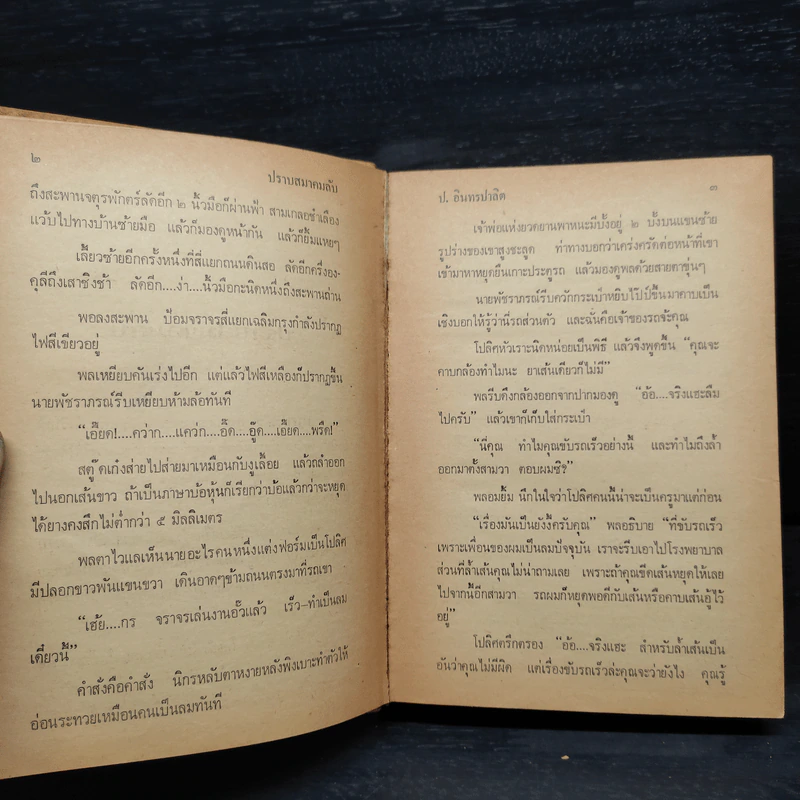 ๒
ปราบสมาคมลับ
ถึงสะพานจตุรพักตร์ลัดอีก ๒ นิ้วมือก็ผ่านฟ้า สามเกลอชำเลือง
แว้บไปทางบ้านซ้ายมือ แล้วก็มองดูหน้ากัน แล้วก็ยิ้มแหยๆ
เลี้ยวซ้ายอีกครั้งหนึ่งที่สี่แยกถนนดินสอ ลัดอีกครึ่งอง-
คุลีถึงเสาชิงช้า ลัดอีก....ง่า....นิ้วมือกะนิดหนึ่งถึงสะพานถ่าน
พอลงสะพาน ป้อมจราจรสี่แยกเฉลิมกรุงกำลังปรากฏ
ไฟสีเขียวอยู่
พลเหยียบคันเร่งไปอีก แต่แล้วไฟสีเหลืองก็ปรากฏขึ้น
นายพัชราภรณ์รีบเหยียบห้ามล้อทันที
“เอี๊ยด!....คว่าก....แคว่ก....อี๊ด....อู๊ด....เอี๊ยด....พรืด!”
สตู๊ดเก๋งส่ายไปส่ายมาเหมือนกับงูเลื้อย แล้วถลำออก
ไปนอกเส้นขาว ถ้าเป็นภาษาบ้อหุ้นก็เรียกว่าบ้อแล้วกว่าจะหยุด
ได้ยางคงสึกไม่ต่ำกว่า ๕ มิลลิเมตร
พลตาไวแลเห็นนายอะไรคนหนึ่งแต่งฟอร์มเป็นโปลิศ
มีปลอกขาวพันแขนขวา เดินอาดๆข้ามถนนตรงมาที่รถเขา
“เฮ้ย....กร จราจรเล่นงานอั๊วแล้ว เร็ว-ทำเป็นลม
เดี๋ยวนี้”
คำสั่งคือคำสั่ง นิกรหลับตาหงายหลังพิงเบาะทำตัวให้
อ่อนระทวยเหมือนคนเป็นลมทันที
ป. อินทรปาลิต
๓
เจ้าพ่อแห่งยวดยานพาหนะมีบั้งอยู่ ๒ บั้งบนแขนซ้าย
รูปร่างของเขาสูงชะลูด ท่าทางบอกว่าเคร่งครัดต่อหน้าที่เขา
เข้ามาหาหยุดยืนเกาะประตูรถ แล้วมองดูพลด้วยสายตาขุ่นๆ
นายพัชราภรณ์รีบควักกระเป๋าหยิบไป๊ป์ขึ้นมาคาบเป็น
เชิงบอกให้รู้ว่านี่รถส่วนตัว และฉันคือเจ้าของรถจ้ะคุณ
โปลิศหัวเราะนิดหน่อยเป็นพิธี แล้วจึงพูดขึ้น “คุณจะ
คาบกล้องทำไมนะ ยาเส้นเดียวก็ไม่มี”
พลรีบดึงกล้องออกจากปากมองดู “อ้อ....จริงแฮะลืม
ไปครับ” แล้วเขาก็เก็บใส่กระเป๋า
“นี่คุณ ทำไมคุณขับรถเร็วอย่างนี้ และทำไมถึงล้ำ
ออกมาตั้งสามวา ตอบผมซิ?”
พลอมยิ้ม นึกในใจว่าโปลิศคนนี้น่าจะเป็นครูมาแต่ก่อน
“เรื่องมันเป็นยังงี้ครับคุณ” พลอธิบาย “ที่ขับรถเร็ว
เพราะเพื่อนของผมเป็นลมปัจจุบัน เราจะรีบเอาไปโรงพยาบาล
ส่วนที่ล้ำเส้นคุณไม่น่าถามเลย เพราะถ้าคุณขีดเส้นหยุดให้เลย
ไปจากนี้อีกสามวา รถผมก็หยุดพอดีกับเส้นหรือคาบเส้นอู้ไว้
อยู่”
โปลิศตรึกตรอง “อ้อ....จริงแฮะ สำหรับล้ำเส้นเป็น
อันว่าคุณไม่มีผิด แต่เรื่องขับรถเร็วล่ะคุณจะว่ายังไง คุณรู้